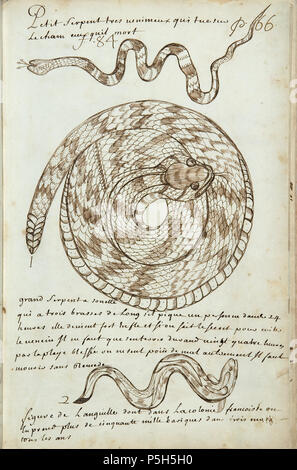 Petit Serpent tres venimeux qui tue sur
Le cham ceux quil mort
P. 66
84
grand Serpent a sonette
qui a trois brasses de Long sil pique un personn dans 24
heures elle devient fort Enflé et si on fait le secret pour
le venin Il ne faut que dans vingt quatre heures
pas la playe on ne sent point de mal autrement Il faut
mourir sans Remede
2
figure de Languille dont dans La colonie francoise on
En prend plus de cinquante mille bariques dans trois mois
tous les ans